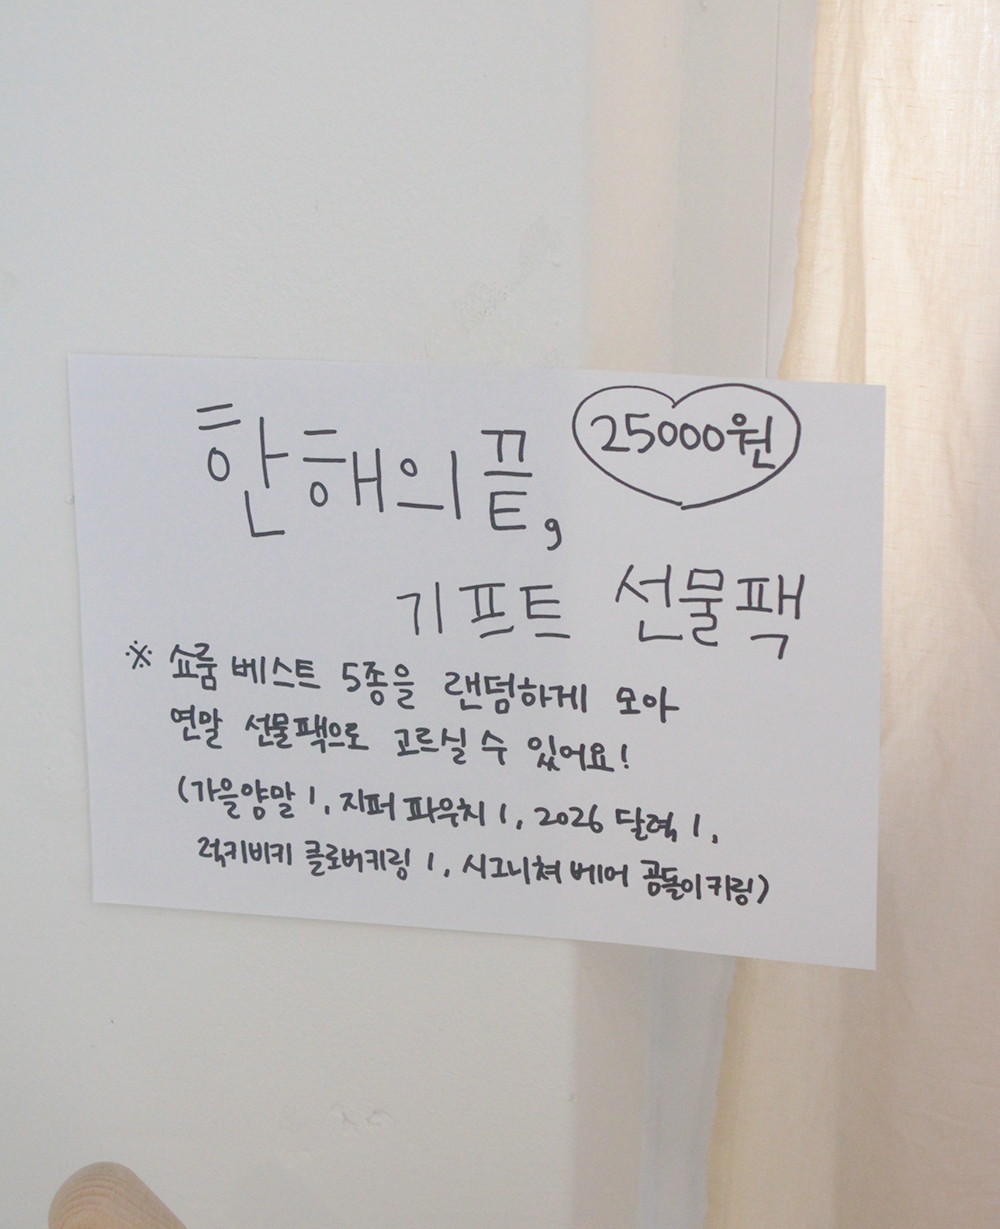 한해의끝,
25000원
기프트 선물팩
※ 쇼룸 베스트 5종을 랜덤하게 모아
연말 선물팩으로 고르실 수 있어요!
(가을양말 1, 지퍼 파우치 1, 2026 달력 1,
럭키비키 클로버키링 1, 시그니쳐 베어 곰돌이키링)